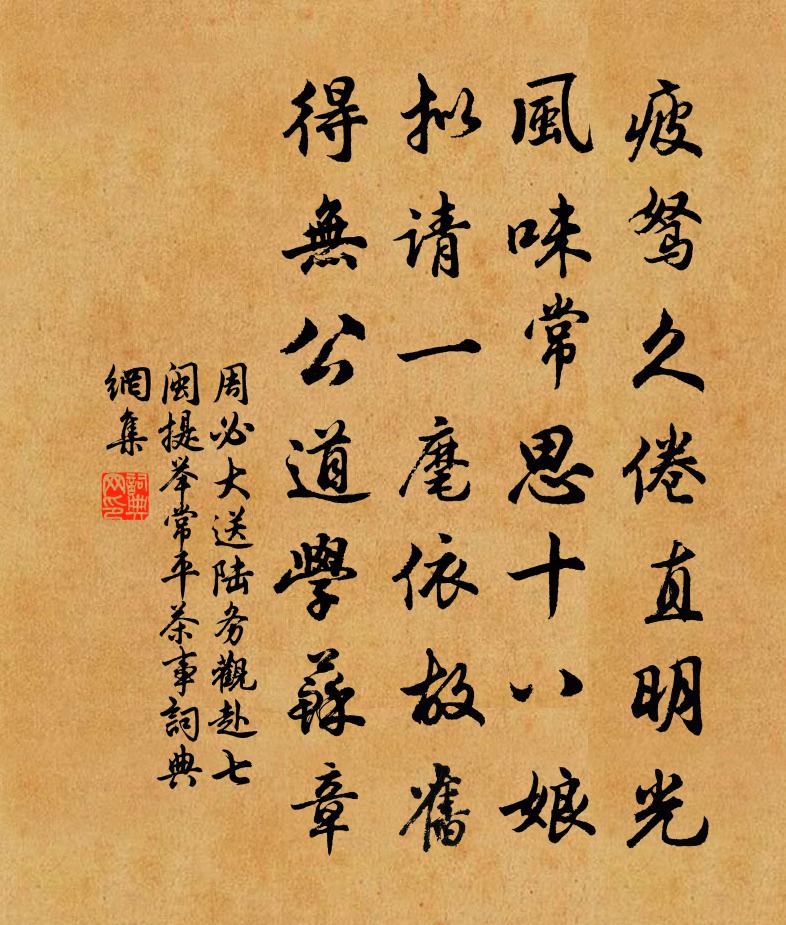 疲驽久倦直明光
風味常思十八娘
拟请一麾依故舊
得無公道學蘇章
周必大送陆务觀赴七
闽提举常平茶事詞典
網集
詞典
网印